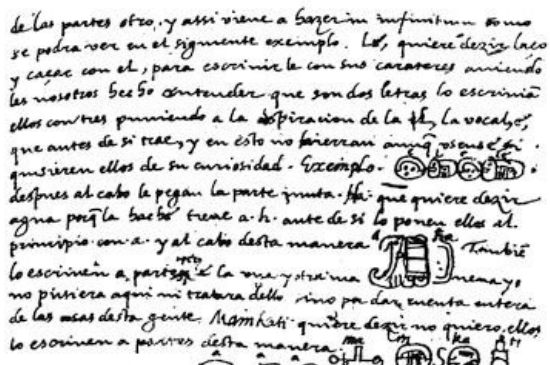 de las partes otro, y assi viene a hazer in infinitum como
se podra ver en el siguiente exemplo. Lé, quiere dezir laço
y caçar con el, para escrivirle con sus carateres aviendo
les nosotros hecho entender que son dos letras lo escrivian
ellos con tres puniendo a la aspiracion de la l, la vocal, e,
que antes de si trae, y en esto no hierran aunq̃ usense, si
quisieren ellos de su curiosidad. Exemplo.
despues al cabo le pegan la parte junta. Ha. que quiere dezir
agua porq̃ la hachè tiene a. h. ante de si lo ponen ellos al
principio con a. y al cabo desta manera
a ha Tambiē
lo escriven a partes la una y otra ma nera yo
no pusiera aqui ni tratara dello sino por dar cuenta entera
de las cosas desta gente. Mainkati quiere dezir no quiero, ellos
lo escriven a partes desta manera.
ma i n ka ti